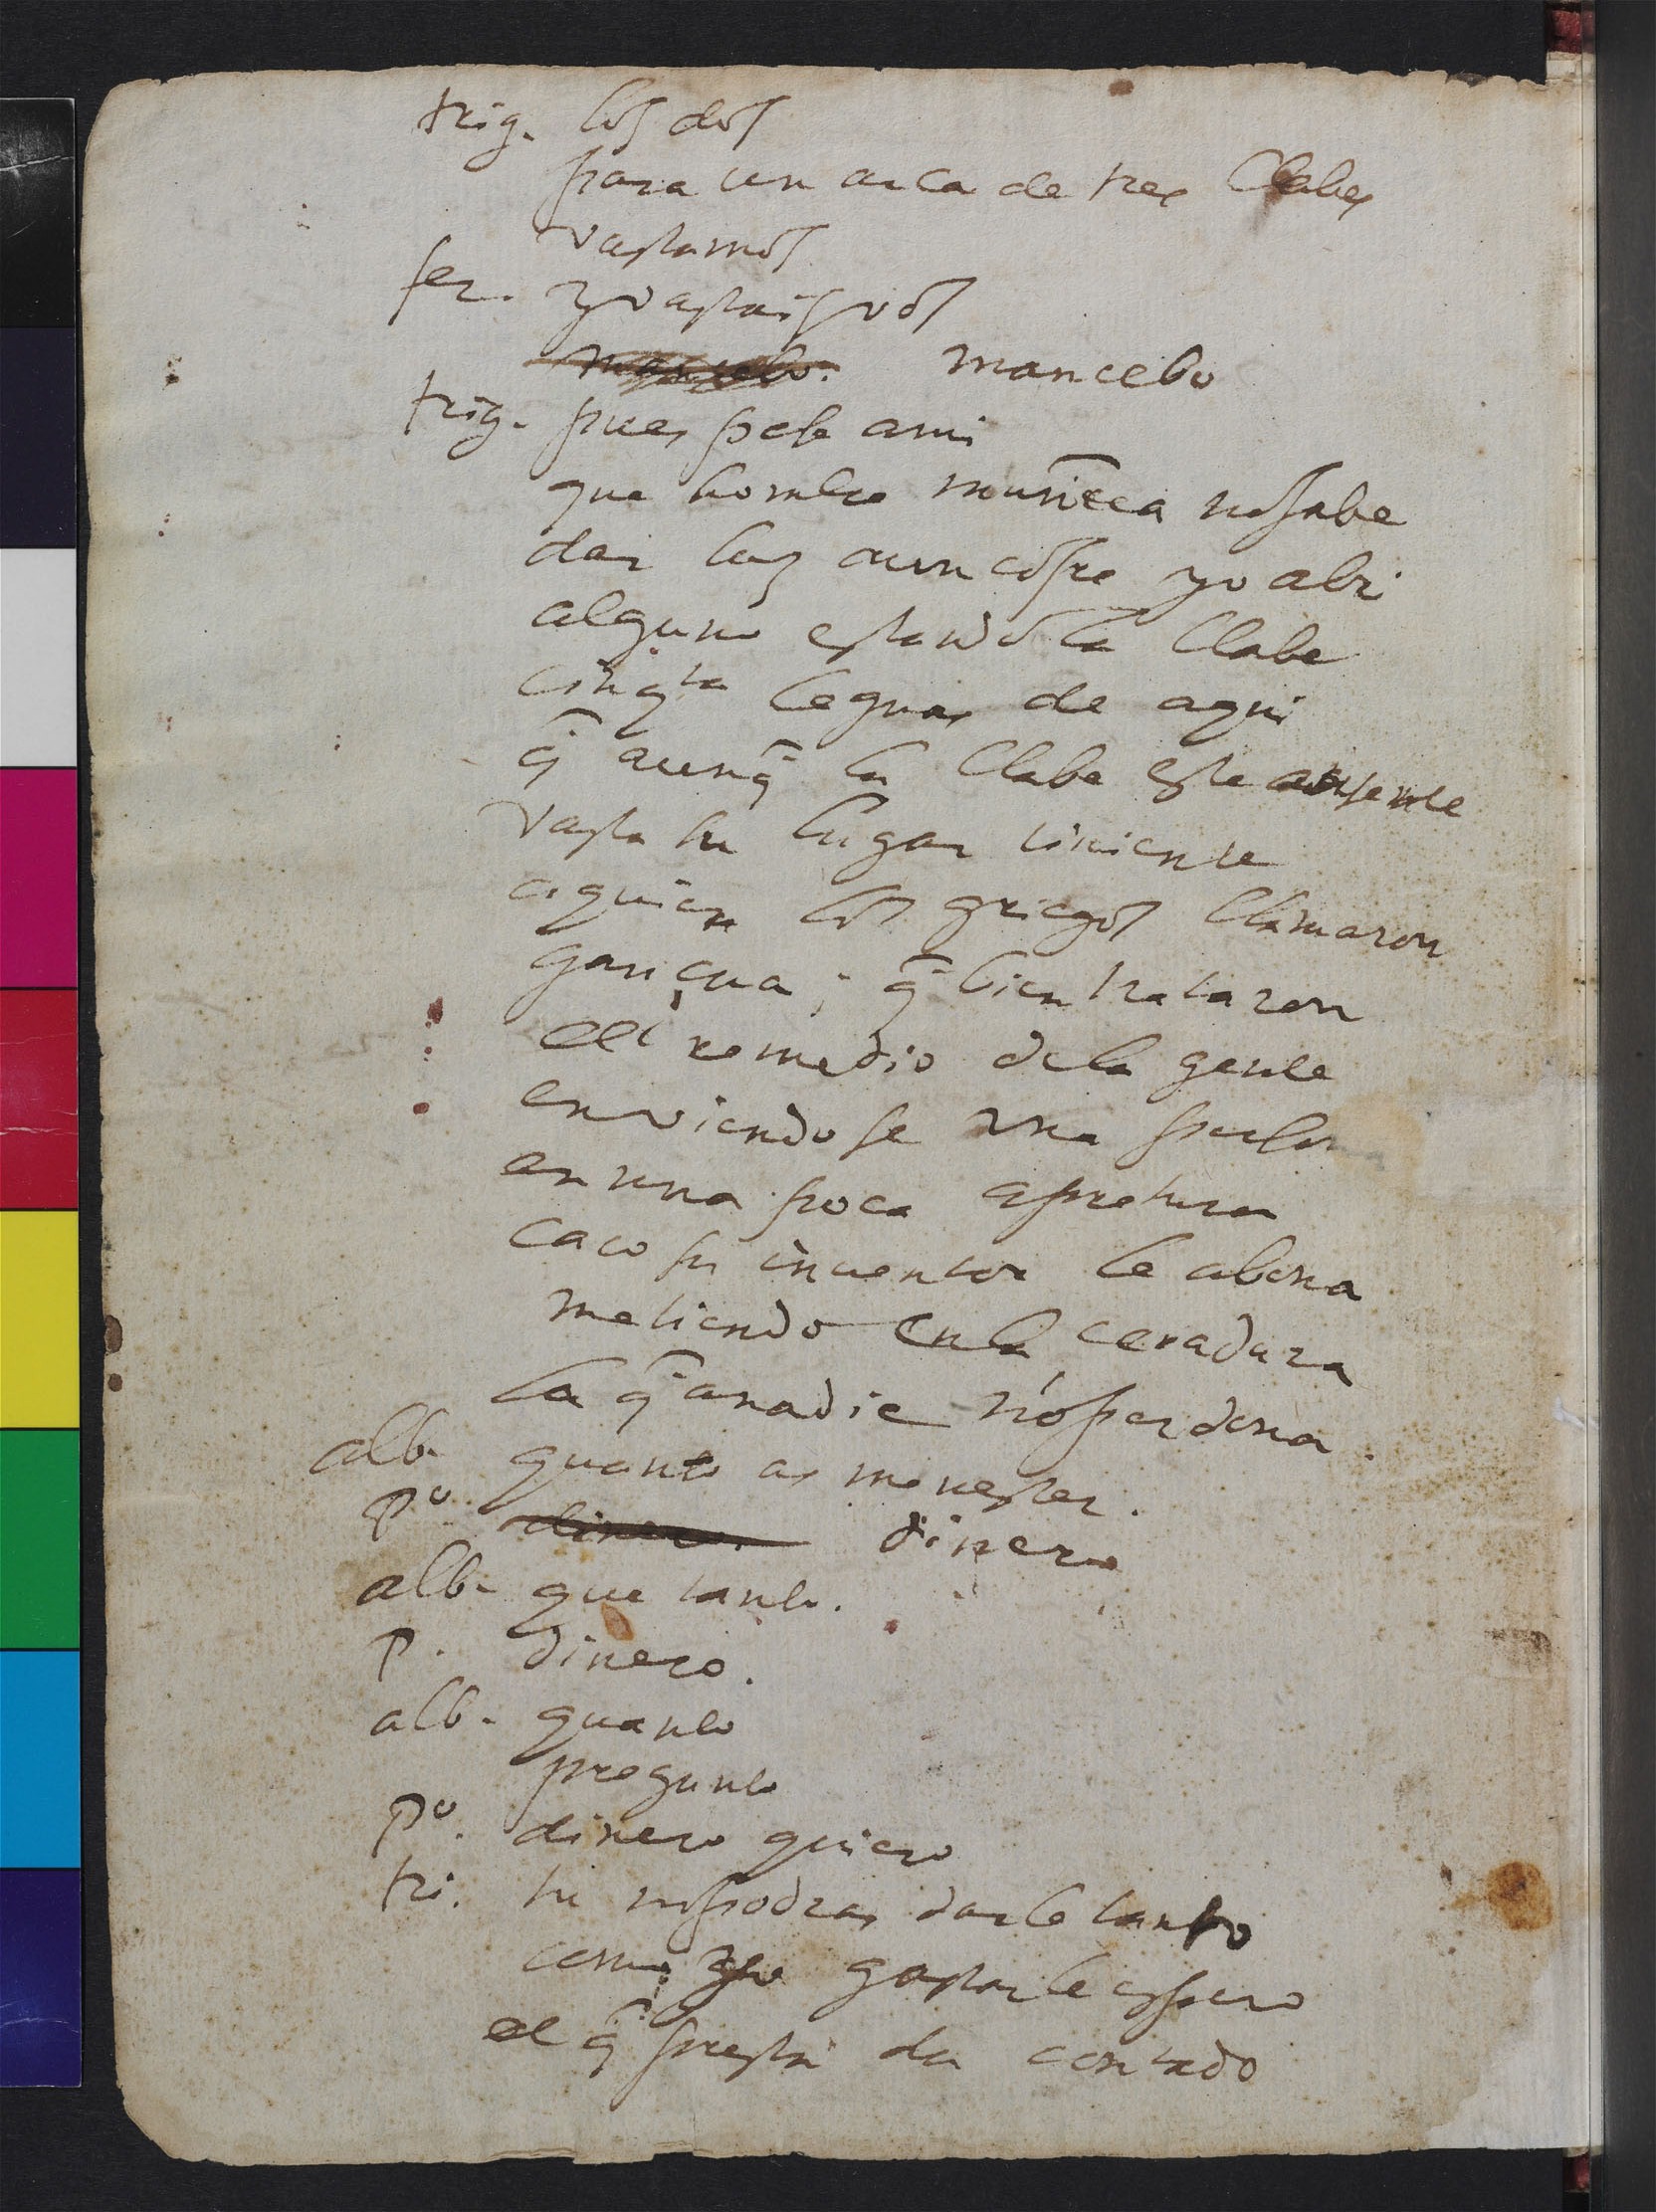 trig. los dos
para un arca de tres llabes
vastamos
fer. y vastais vos
mancebo. mancebo
trig. pues pese a mi
que hombre nunca no sabe
dar luz a un cofre yo abri
alguno estando la llabe
cinqta leguas de aqui
q̃ aunq̃ la llabe este ausente
vasta su lugar tiniente
a quien los griegos llamaron
gançua; q̃ bien trataron
el remedio de la gente
en viendose una
en una poca apretura
caco su inuentor le abona
metiendo en la ceradura
la q̃ a nadie no perdona
alb. quanto as menester.
po. dinero. dinero
alb. que tanto.
p. dinero.
alb. quanto
pregunto
po. dinero quiero
tri. tu no podras darle tanto
como yo gastarle espero
el q̃ presta da contado